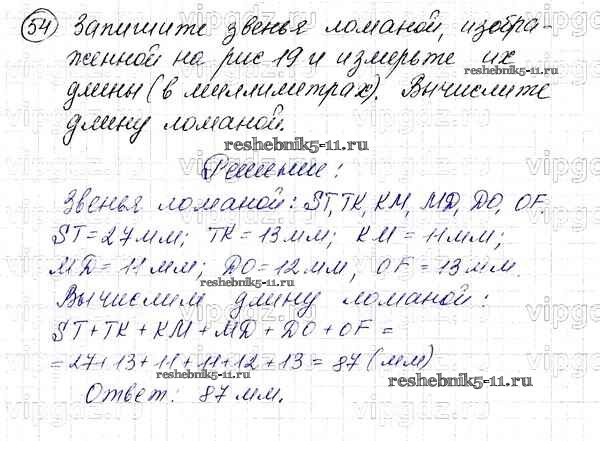 54 Запишите звенья ломаной, изобра-
женной на рис 19 и измерьте их
длины (в миллиметрах). Вычислите
длину ломаной.
Решение:
Звенья ломаной: ST, TK, KM, MD, DO, OF.
ST = 27 мм; TK = 13 мм; KM = 11 мм;
MD = 11 мм; DO = 12 мм, OF = 13 мм.
Вычислим длину ломаной:
ST + TK + KM + MD + DO + OF =
= 27 + 13 + 11 + 11 + 12 + 13 = 87 (мм)
Ответ: 87 мм.
reshebnik5-11.ru
reshebnik5-11.ru
reshebnik5-11.ru
reshebnik5-11.ru